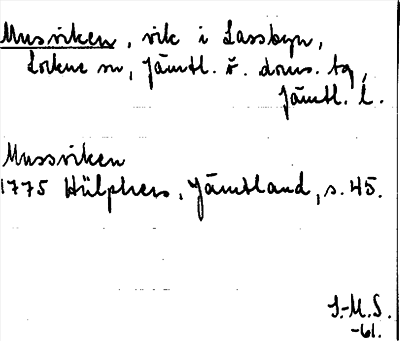 Musviken, vik i Lassbyn,
Lockne sn, Jämtl. ö. doms. tg,
Jämtl. l.
Mussviken
1775 Hülphers, Jämtland, s. 45.
S.-M.S.
-61.